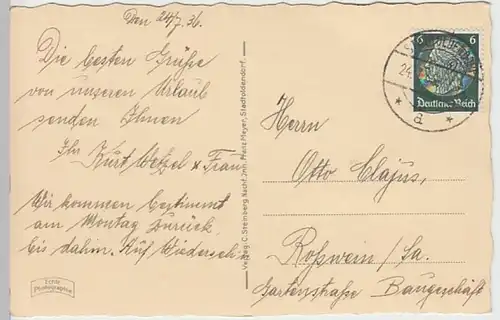 Den 24/7. 36.
Die besten Grüße
von unseren Urlaub
senden Ihnen
Ihr Kurt Wetzel u Frau
Wir kommen bestimmt
am Montag zurück,
bis dahin. Auf Wiederseh.
Echte
Photographie
Verlag: C. Steinberg Nachf. Inh. Meyer, Stadtoldendorf.
6 6
Deutsches Reich
24.
* d *
Herrn
Otto Clajus,
Roßwein/Sa.
Gartenstraße Baugeschäft